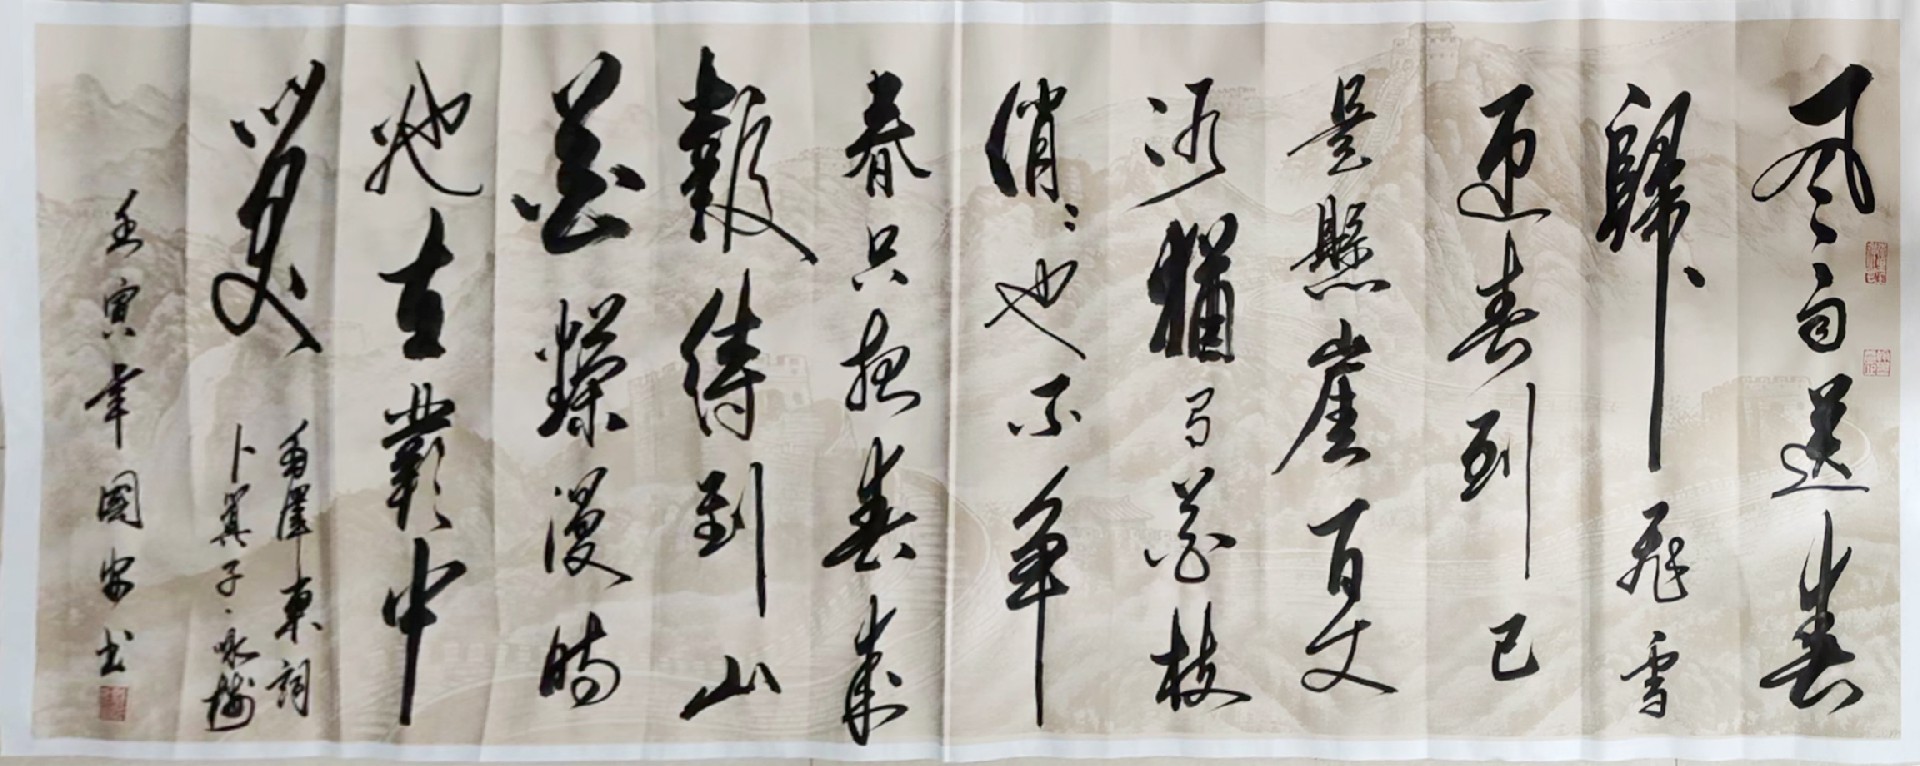 风雨送春
歸飛雪
迎春到已
是懸崖百丈
冰猶有花枝
俏〻也不争
春只把春来
報待到山
花爛漫時
她在叢中
笑
毛澤東詞
卜算子·咏梅
壬寅年國安书